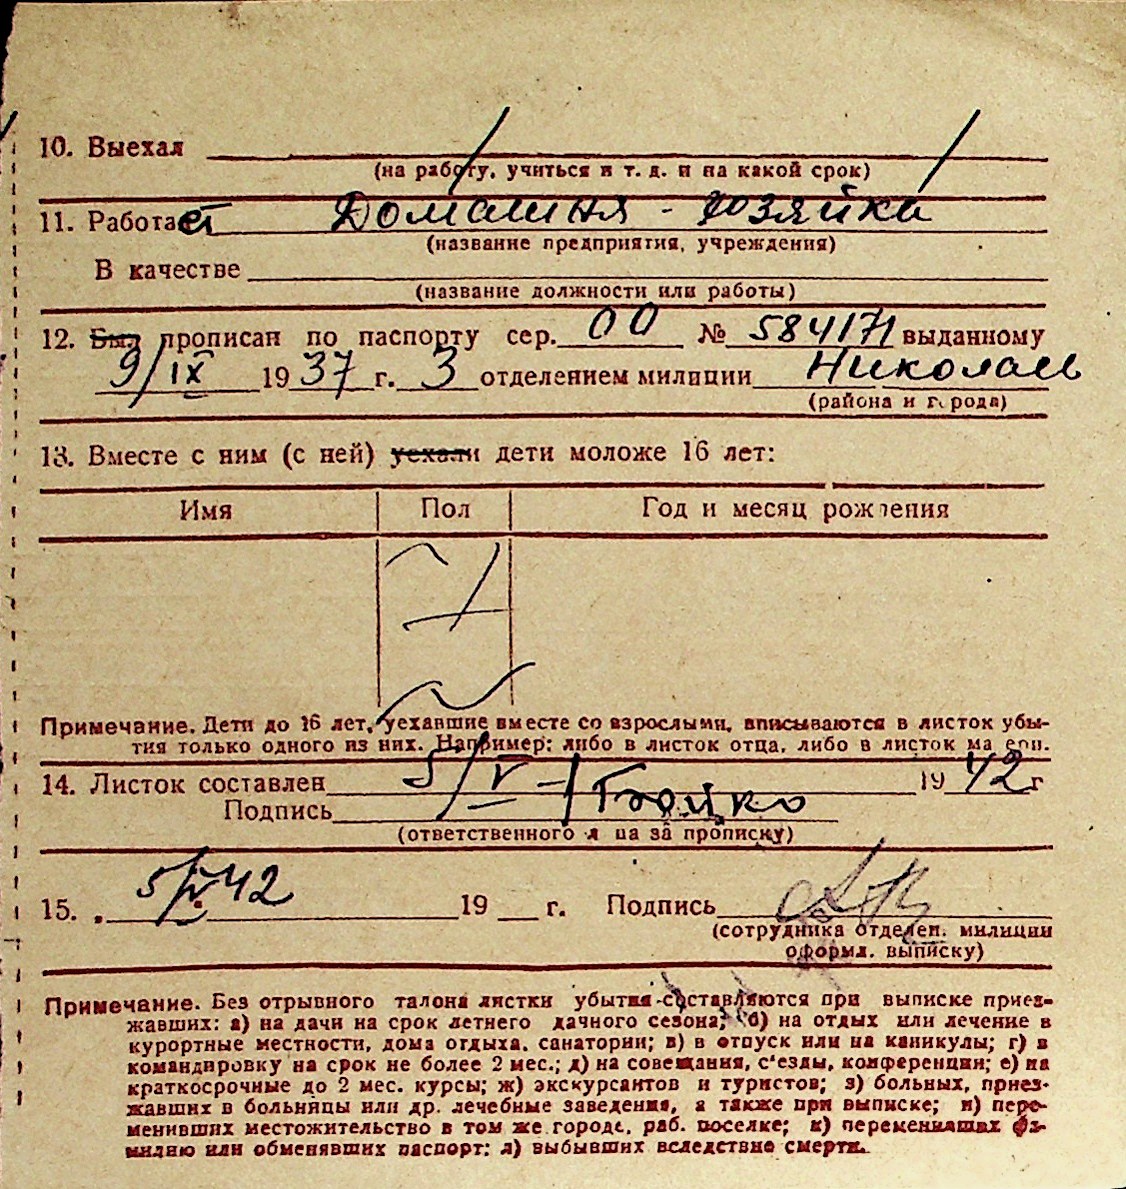 10. Выехал
(на работу, учиться и т. д. и на какой срок)
11. Работает Домашняя - хозяйка
(название предприятия, учреждения)
В качестве
(название должности или работы)
12. Был прописан по паспорту сер. 00 № 584171 выданному
9/IX 1937 г. 3 отделением милиции Николаев
(района и города)
13. Вместе с ним (с ней) уехали дети моложе 16 лет:
Имя Пол Год и месяц рождения
Примечание. Дети до 16 лет, уехавшие вместе со взрослыми, вписываются в листок убы-
тия только одного из них. Например: либо в листок отца, либо в листок матери.
14. Листок составлен 5/V 1942 г
Подпись Бойко
(ответственного лица за прописку)
15. 5/V 42 19 г. Подпись
(сотрудника отделен. милиции
оформл. выписку)
Примечание. Без отрывного талона листки убытия составляются при выписке приез-
жавших: а) на дачи на срок летнего дачного сезона; б) на отдых или лечение в
курортные местности, дома отдыха, санатории; в) в отпуск или на каникулы; г) в
командировку на срок не более 2 мес.; д) на совещания, с'езды, конференции; е) на
краткосрочные до 2 мес. курсы; ж) экскурсантов и туристов; з) больных, приез-
жавших в больницы или др. лечебные заведения, а также при выписке; и) пере-
менивших местожительство в том же городе, раб. поселке; к) переменивших фа-
милию или обменявших паспорт; л) выбывших вследствие смерти.